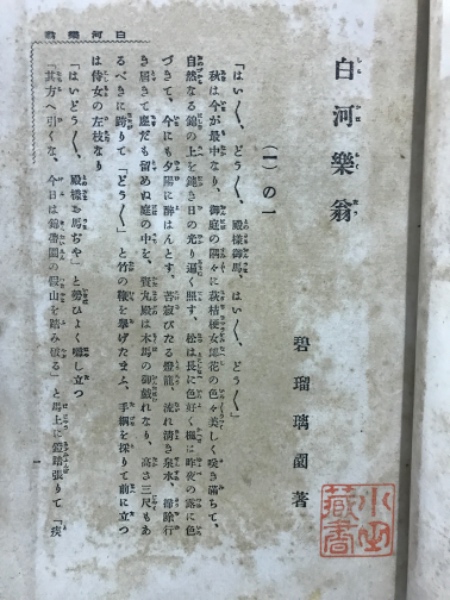 白河樂翁
碧瑠璃園著
（一）の一
「はい〱、どう〱、殿樣御馬、はい〱、どう〱」
秋は今が最中なり、御庭の隅々に萩桔梗女郎花の色々美しく咲き滿ちて、
自然なる錦の上を鈍き日の光り遍く照す、松は長に色好く楓は昨夜の露に色
づきて、今にも夕陽に醉はんとす、苔寂びたる燈籠、流れ清き泉水、掃除行
き屆きて塵だも留めぬ庭の中を、賢丸殿は木馬の御戲れなり、高さ三尺もあ
るべきに跨りて「どう〱」と竹の鞭を擧げたまふ、手綱を採りて前に立つ
は侍女の左枝なり
「はいどう〱、殿樣お馬ぢや」と勢ひよく囃し立つ
「其方へ引くな、今日は錦帶園の假山を踏み破る」と馬上に鐙踏張りて「疾
白河樂翁
一
藏書